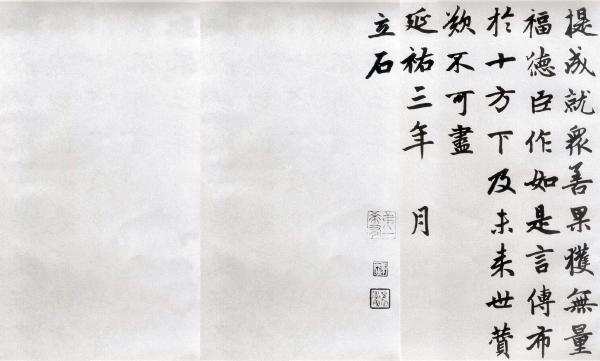 提成就衆善果獲無量
福德臣作如是言傳布
於十方下及未来世賛
歎不可盡
延祐三年 月
立石